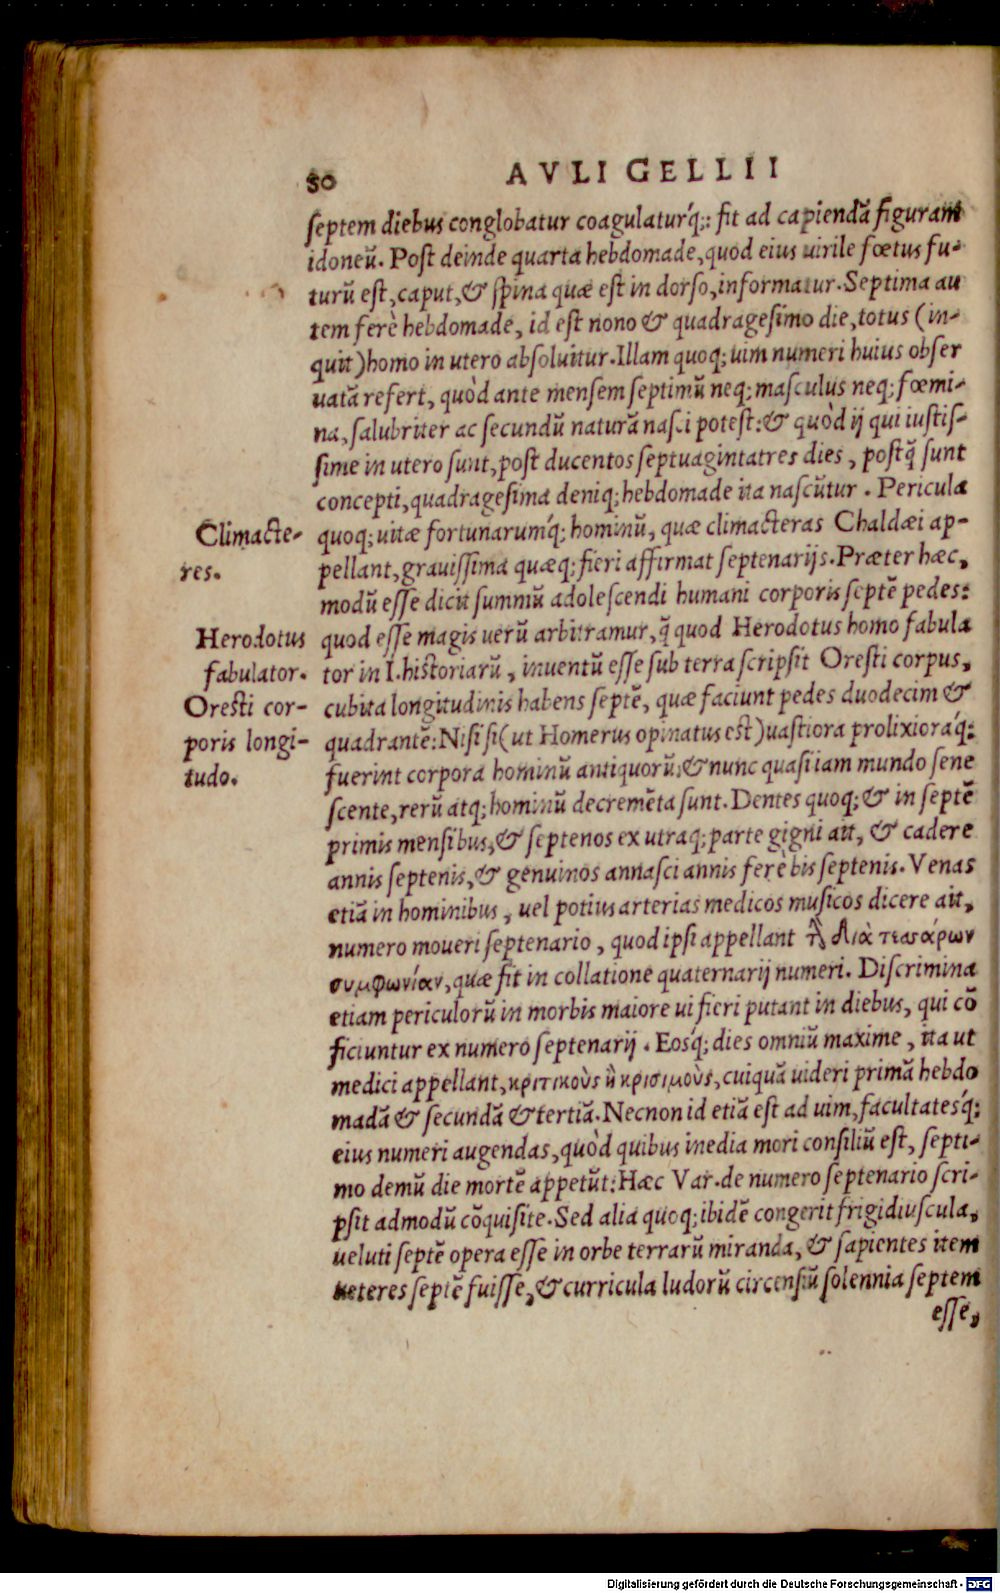 80
AVLI GELLII
septem diebus conglobatur coagulaturq́;: fit ad capiendã figuram
idoneũ. Post deinde quarta hebdomade, quod eius uirile fœtus fu-
turũ est, caput, & spina quæ est in dorso, informatur. Septima au
tem ferè hebdomade, id est nono & quadragesimo die, totus (in-
quit) homo in utero absoluitur. Illam quoq; uim numeri huius obser
uatã refert, quòd ante mensem septimũ neq; masculus neq; fœmi-
na, salubriter ac secundũ naturã nasci potest: & quòd ij qui iustis-
sime in utero sunt, post ducentos septuagintatres dies, postq̃ sunt
concepti, quadragesima deniq; hebdomade ita nascũtur. Pericula
Climacte-
res.
quoq; uitæ fortunarumq́; hominũ, quæ climacteras Chaldæi ap-
pellant, grauissima quæq; fieri affirmat septenarijs. Præter hæc,
modũ esse dicit summũ adolescendi humani corporis septẽ pedes:
Herodotus
fabulator.
Oresti cor-
poris longi-
tudo.
quod esse magis uerũ arbitramur, q̃ quod Herodotus homo fabula
tor in I. historiarũ, inuentũ esse sub terra scripsit Oresti corpus,
cubita longitudinis habens septẽ, quæ faciunt pedes duodecim &
quadrantẽ: Nisi si (ut Homerus opinatus est) uastiora prolixioraq́;
fuerint corpora hominũ antiquorũ: & nunc quasi iam mundo sene
scente, rerũ atq; hominũ decremẽta sunt. Dentes quoq; & in septẽ
primis mensibus, & septenos ex utraq; parte gigni ait, & cadere
annis septenis, & genuinos annasci annis ferè bis septenis. Venas
etiã in hominibus, uel potius arterias medicos musicos dicere ait,
numero moueri septenario, quod ipsi appellant τὴν διὰ τεσσάρων
συμφωνίαν, quæ fit in collatione quaternarij numeri. Discrimina
etiam periculorũ in morbis maiore ui fieri putant in diebus, qui cõ
ficiuntur ex numero septenarij. Eosq́; dies omniũ maxime, ita ut
medici appellant, κριτικοὺς ἢ κρισίμους, cuiquã uideri primã hebdo
madã & secundã & tertiã. Necnon id etiã est ad uim, facultatesq́;
eius numeri augendas, quòd quibus inedia mori consiliũ est, septi-
mo demũ die mortẽ appetũt: Hæc Var. de numero septenario scri-
psit admodũ cõquisite. Sed alia quoq; ibidẽ congerit frigidiuscula,
ueluti septẽ opera esse in orbe terrarũ miranda, & sapientes item
ueteres septẽ fuisse, & curricula ludorũ circensiũ solennia septem
esse,
Digitalisierung gefördert durch die Deutsche Forschungsgemeinschaft - DFG